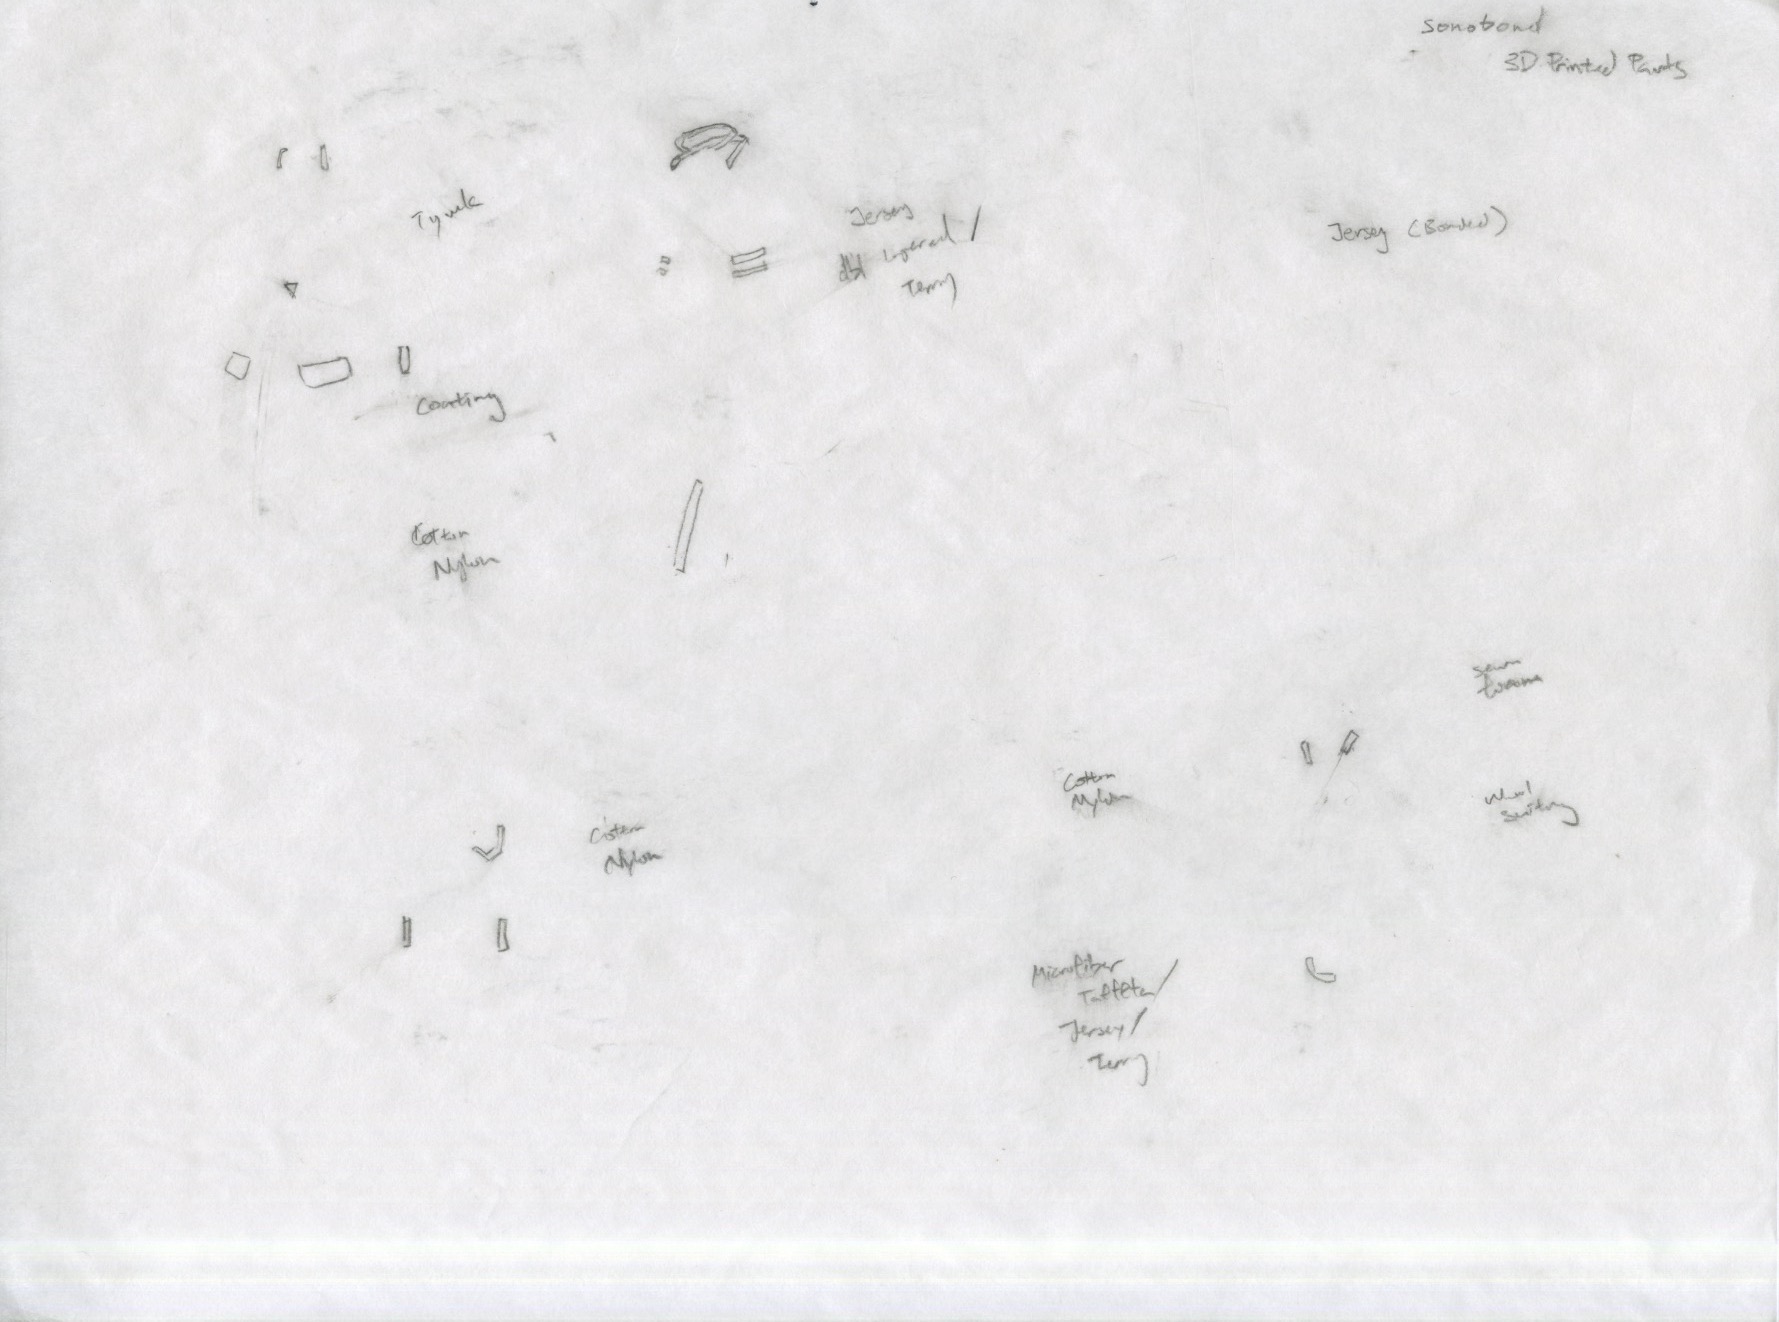 Sonobond
3D Printed Pants
Tyvek
Jersey
dbl layered /
Terry
Jersey (Bonded)
Coating
Cotton
Nylon
Sewn
Cotton
Nylon
Wool
Suiting
Cotton
Nylon
Microfiber
Taffeta/
Jersey/
Terry